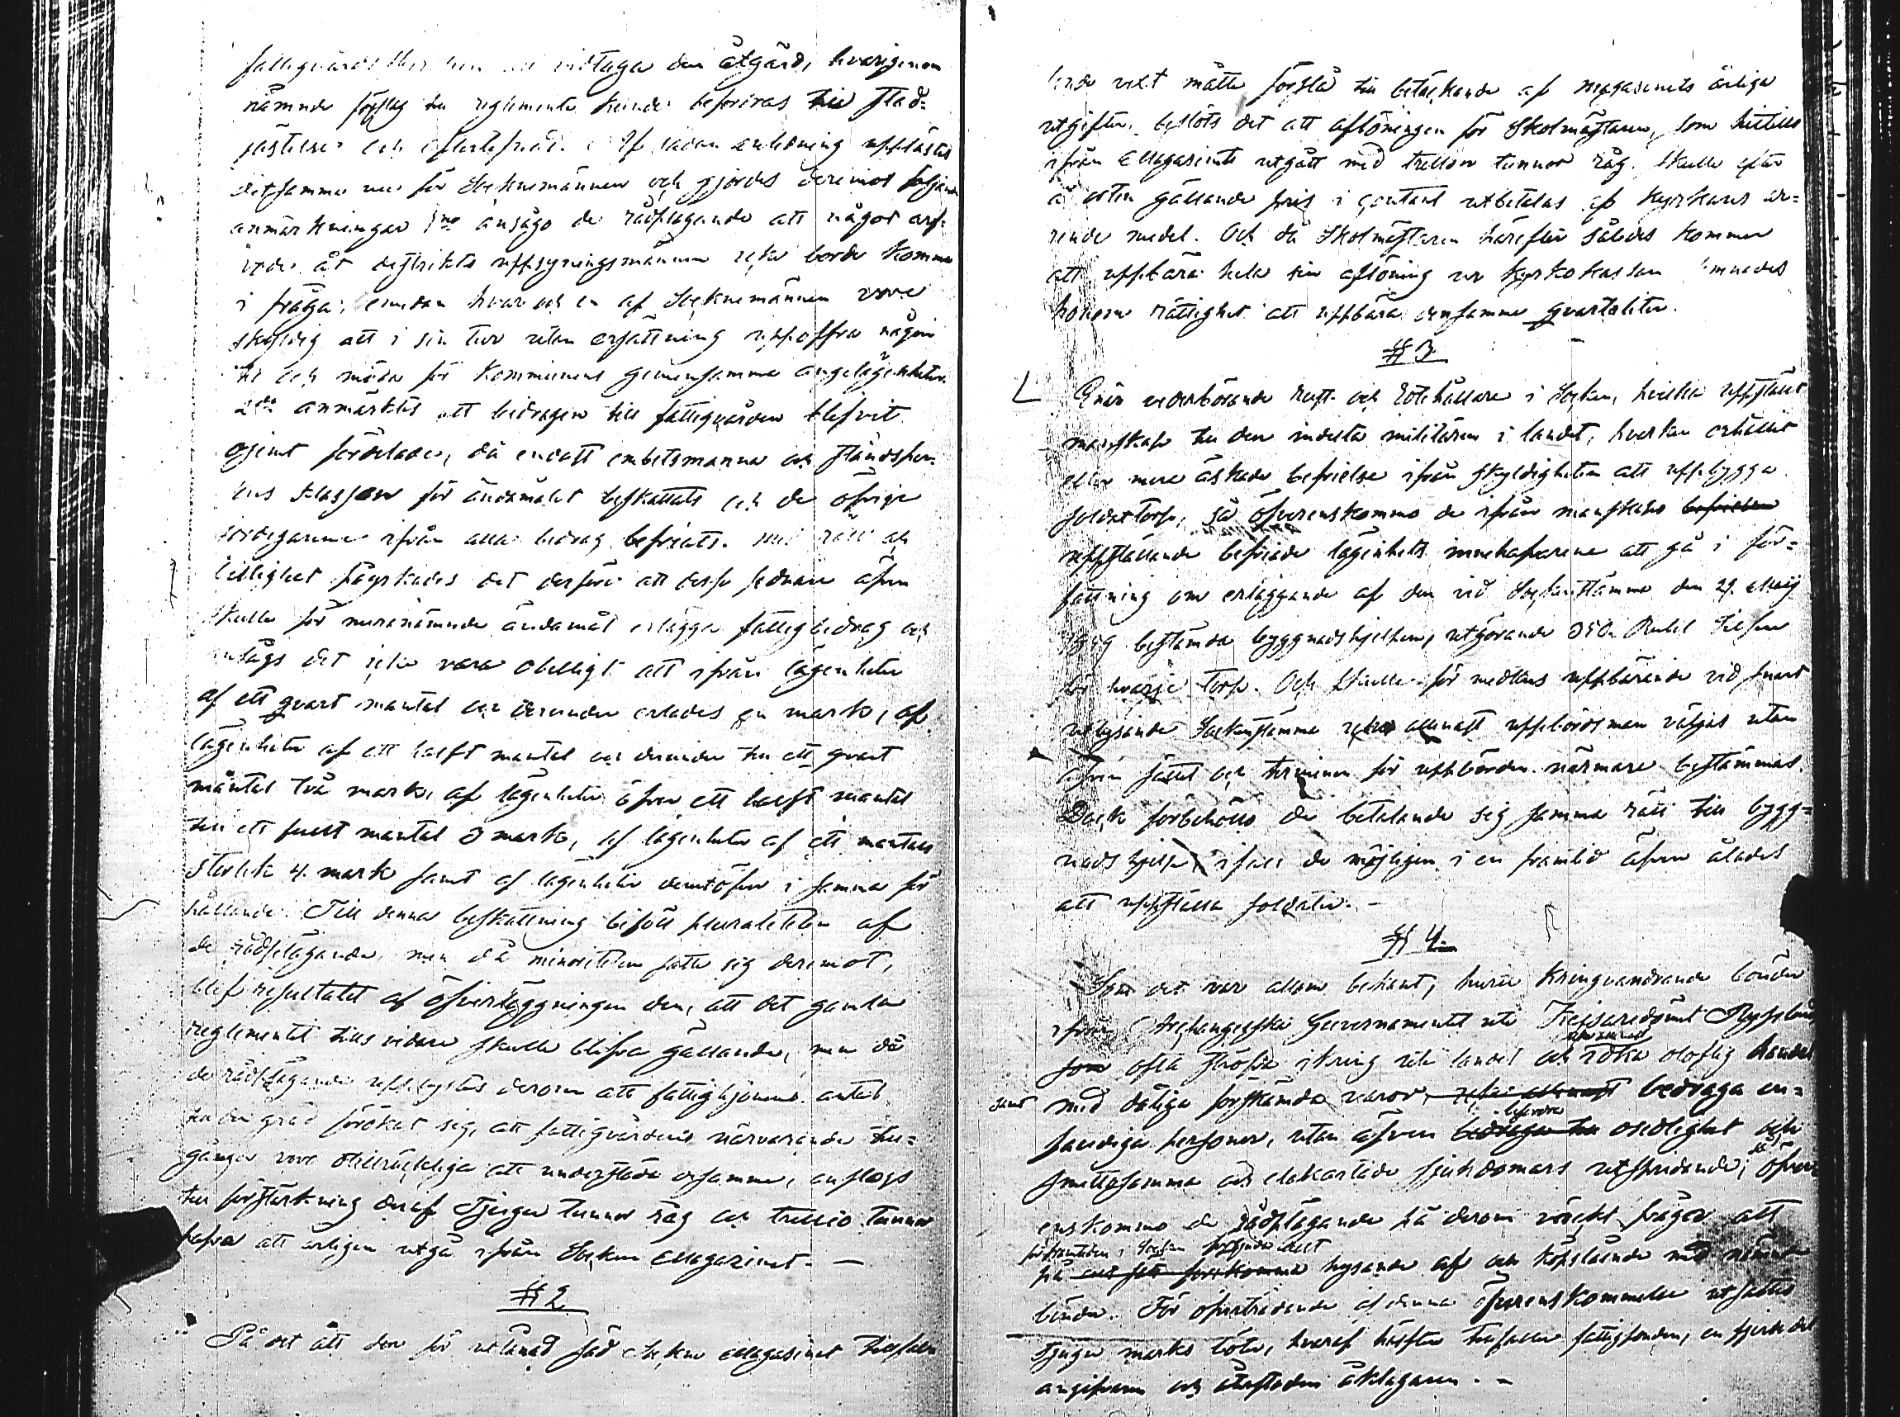 vidtaga den åtgärd, hvarigenom
nämnde förslag till reglemente kunde befordras till stad-
fästelse och efterlefnad. Af sådan anledning upplästes
detsamma nu för Socknemännen och gjordes deremot följande
anmärkningar 1mo ansågo de rådplägande att något arf-
vode åt districts uppsyningsmännen icke borde komma
i fråga, emedan hvar och en af Socknemännen vore
skyldig att i sin tur utan ersättning uppoffra någon
tid och möda för Kommunens gemensamma angelägenheter.
2do anmärktes att bidragen till fattigvården blifvit
ojemt fördelade, då endast embetsmanna och ståndsper-
ners klassen för ändamålet beskattats och de öfrige
jordegarene ifrån alla bidrag befriats. Med rätt och
billighet påyrkades det derföre att desse sednare äfven
skulle för merenämnde ändamål erlägga fattigbidrag och
ansågs det icke vara obilligt att ifrån lägenheter
af ett qvart mantal och derunder erlades en mark, af
lägenheter af ett halft mantal och derunder till ett qvart
mantal två mark, af lägenheter öfver ett halft mantal
till ett fullt mantal 3 mark, af lägenheter af ett mantals
storlek 4 mark samt af lägenheter derutöfver i samma för
hållande. Till denna beskattning biföll pluraliteten af
de rådplägande, men då minoriteten satte sig deremot,
blef resultatet af öfverläggningen den, att det gamla
reglementet tills vidare skulle blifva gällande, men då
de rådplägande upplystes derom att fattighjonens antal
till den grad förökat sig, att fattigvårdens närvarande till-
gångar vore otillräckliga att understöda desamma, anslogs
till förstärkning deraf tjugu tunnor råg och trettio tunnor
hafra att årligen utgå ifrån Sockne Magazinet. —
§ 2
På det att den för utlånad säd Sockne Magasinet tillfallande
växt måtte förslå till betäckande af magasinets årliga
utgifter, beslöts det att aflöningen för Skolmästaren, som hittills
ifrån Magasinet utgått med tretton tunnor råg, skulle efter
å orten gällande pris i contant utbetalas af Kyrkans är-
rende medel. Och då Skolmästaren härefter således kommer
att uppbära hela sin aflöning ur kyrkokassan lemnades
honom rättighet att uppbära densamma qvartaliter.
§ 3
Enär vederbörande rust- och rotehållare i Socken, hvilka uppställt
manskap till den indelta militären i landet, hvarken erhållit
eller mera äskade befrielse ifrån skyldigheten att uppbygga
soldattorp, så öfverenskommo de ifrån manskaps befrielsen
uppställande befriade lägenhets innehafvarene att gå i för-
fattning om erläggande af den vid Sockenstämma den 29 Maij
bestämda byggnadshjelpen, utgörande Rubel Silfver
för hvarje torp. Och skulle för medlens uppbärande vid snart
utlysande Sockenstämma icke allenast uppbördsman väljas utan
äfven sättet och terminen för uppbörden närmare bestämmas.
Dock förbehöllo de betalande sig samma rätt till bygg-
nads hjelp ifall de möjligen i en framtid äfven ålades
att uppställa soldater. —
§ 4
Som det var allom bekant, huru kringvandrande bönder
ifrån Archangelska Guvernamentet uti Kejsaredömet Ryssland
som ofta ströfva ikring uti landet och idka oloflig handel
samt med dåliga förskämda varor, icke allenast bedraga en-
befordra
faldiga personer, utan äfven bidraga till osedlighet och
smittosamma och elakartade sjukdomars utspridande; så öfver-
enskommo de rådplägande på derom väckt frågan att
på hysande af och köpslående med nämnde
bönder. För öfverträdande af denna öfverenskommelse utsattes
tjugu marks böte, hvaraf hälften tillfaller fattigfonden, en fjerdedel
angifvaren och återstoden åklagaren. —